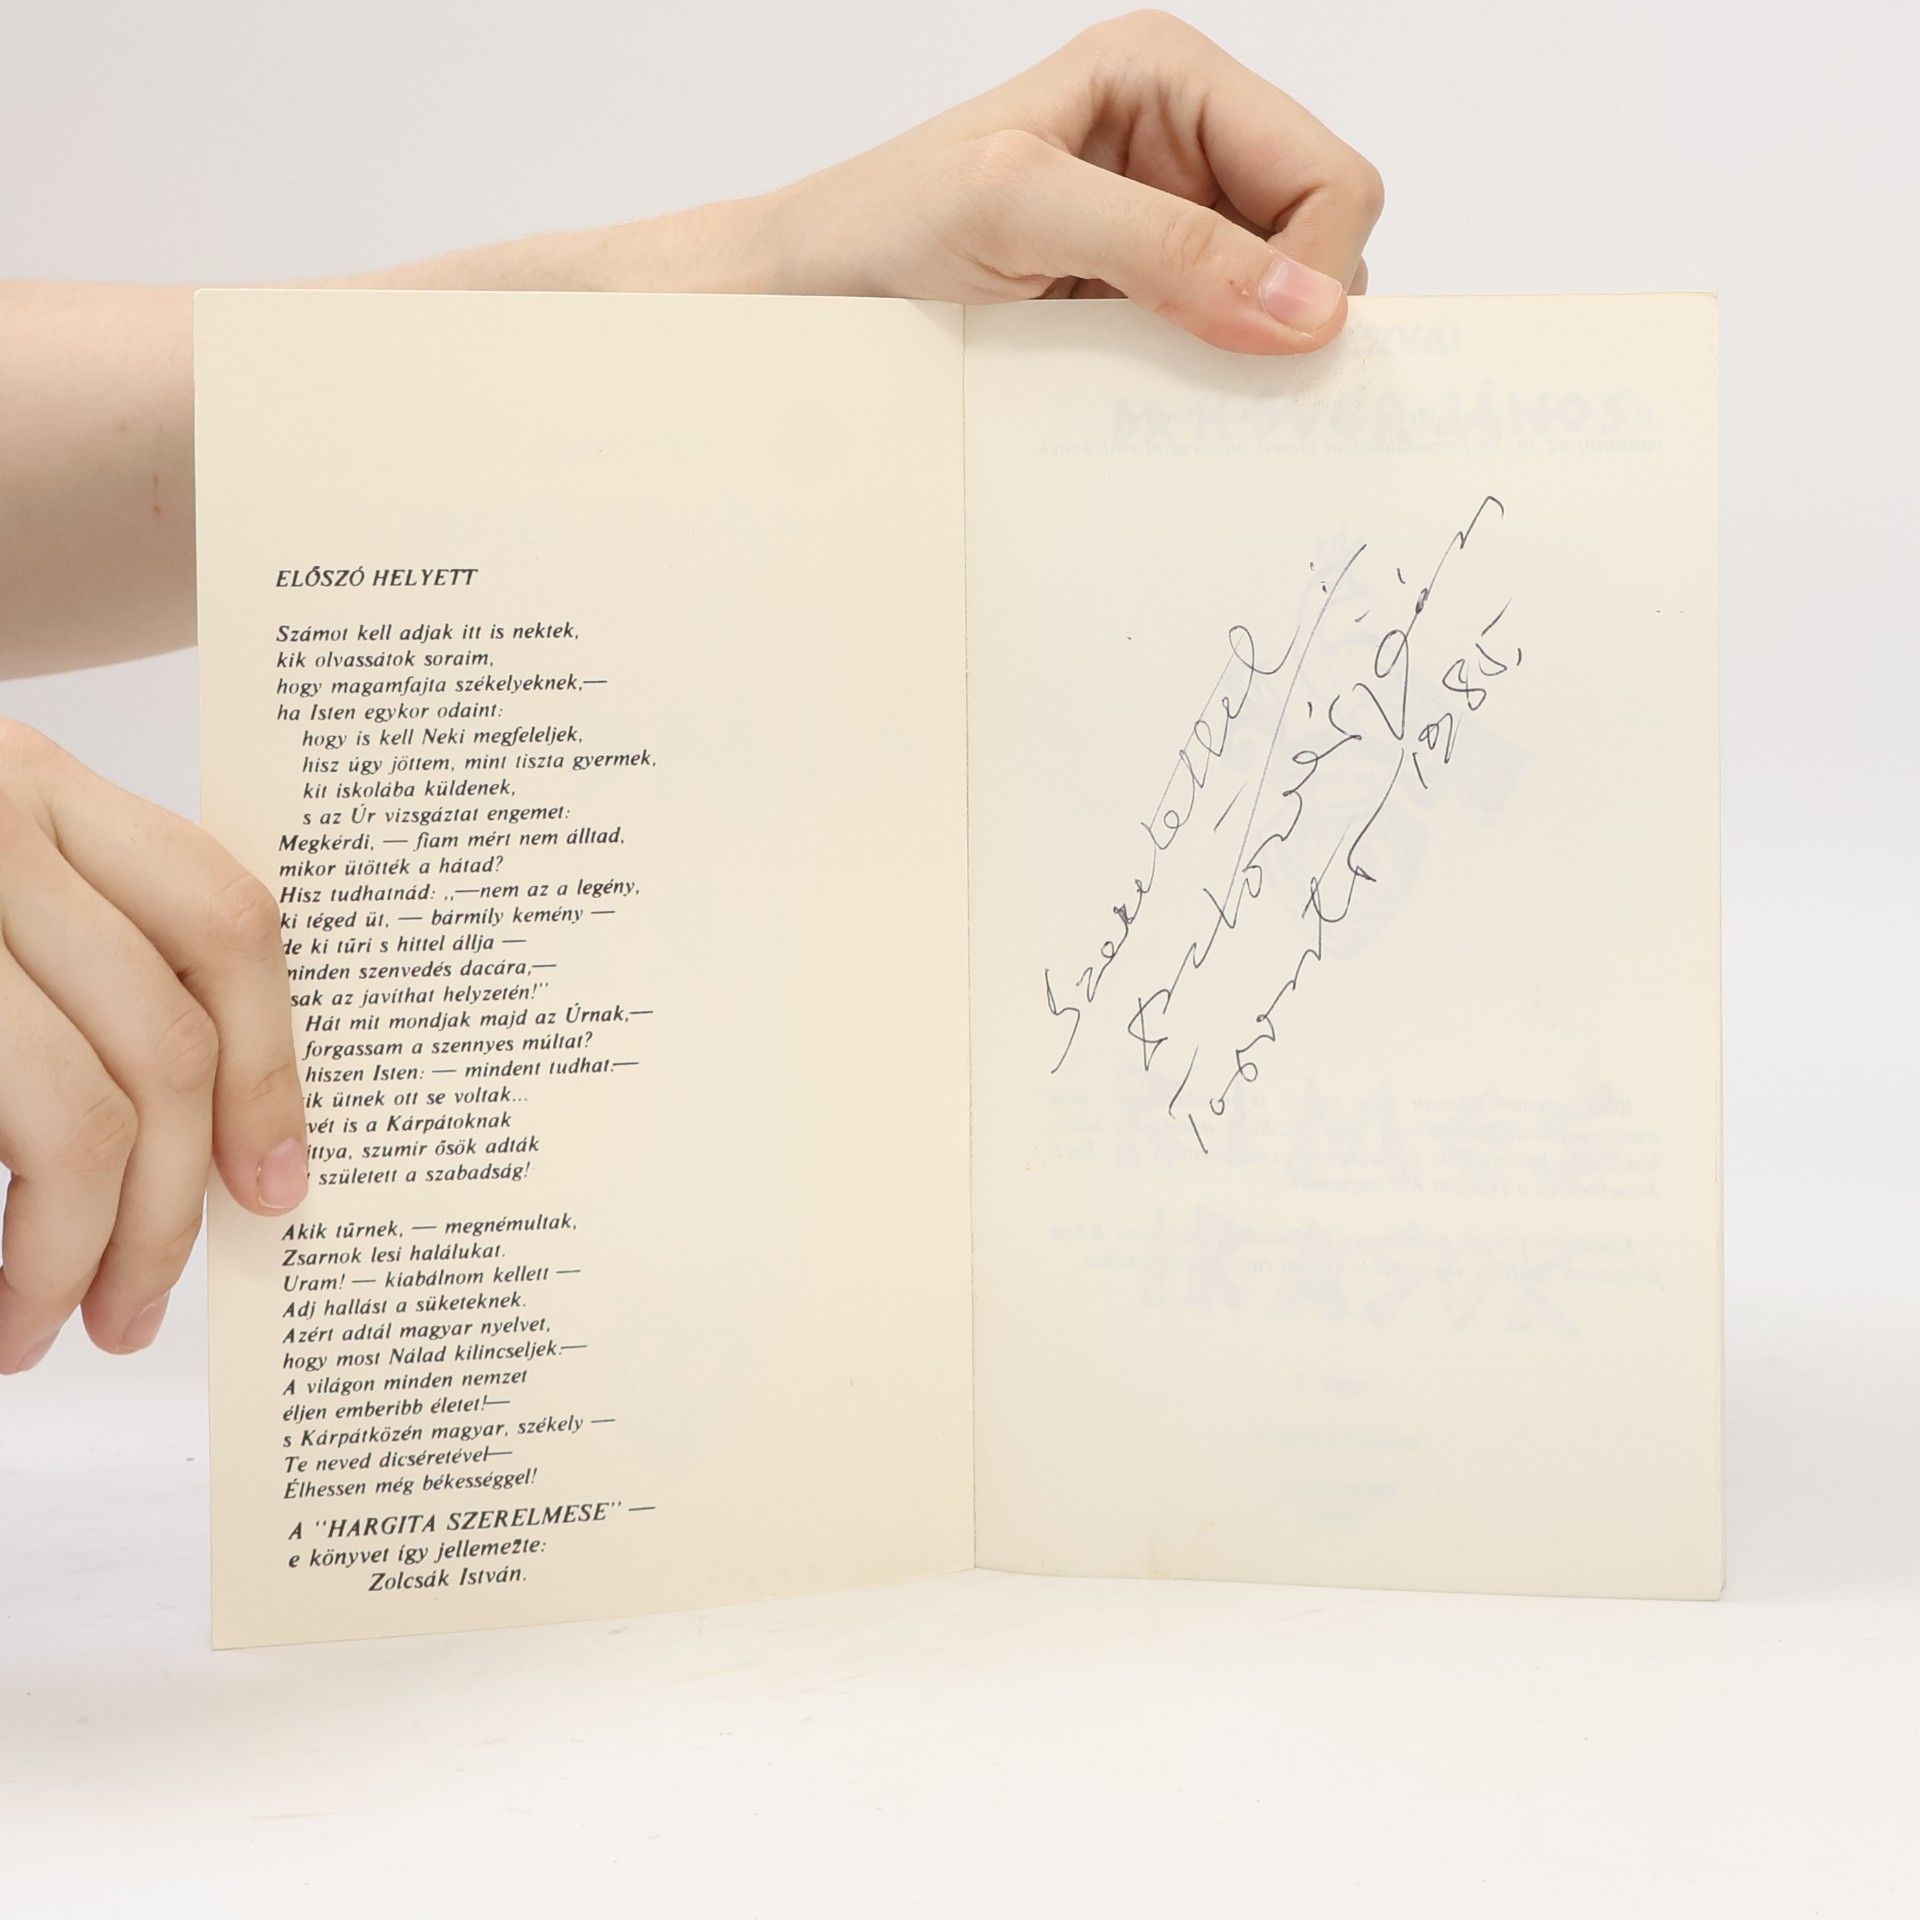 ELŐSZÓ HELYETT
Számot kell adjak itt is nektek,
kik olvassátok soraim,
hogy magamfajta székelyeknek,—
ha Isten egykor odaint:
hogy is kell Neki megfeleljek,
hisz úgy jöttem, mint tiszta gyermek,
kit iskolába küldenek,
s az Úr vizsgáztat engemet:
Megkérdi, — fiam mért nem álltad,
mikor ütötték a hátad?
Hisz tudhatnád: ,,—nem az a legény,
ki téged üt, — bármily kemény —
de ki tűri s hittel állja —
minden szenvedés dacára,—
sak az javíthat helyzetén!"
Hát mit mondjak majd az Úrnak,—
forgassam a szennyes múltat?
hiszen Isten: — mindent tudhat:—
ik ütnek ott se voltak...
vét is a Kárpátoknak
ittya, szumír ősök adták
született a szabadság!
Akik tűrnek, — megnémultak,
Zsarnok lesi halálukat.
Uram! — kiabálnom kellett —
Adj hallást a süketeknek.
Azért adtál magyar nyelvet,
hogy most Nálad kilincseljek:—
A világon minden nemzet
éljen emberibb életet!—
s Kárpátközén magyar, székely —
Te neved dicséretével—
Élhessen még békességgel!
A "HARGITA SZERELMESE" —
e könyvet így jellemezte:
Zolcsák István.
Szeretettel
Toronto 1985.